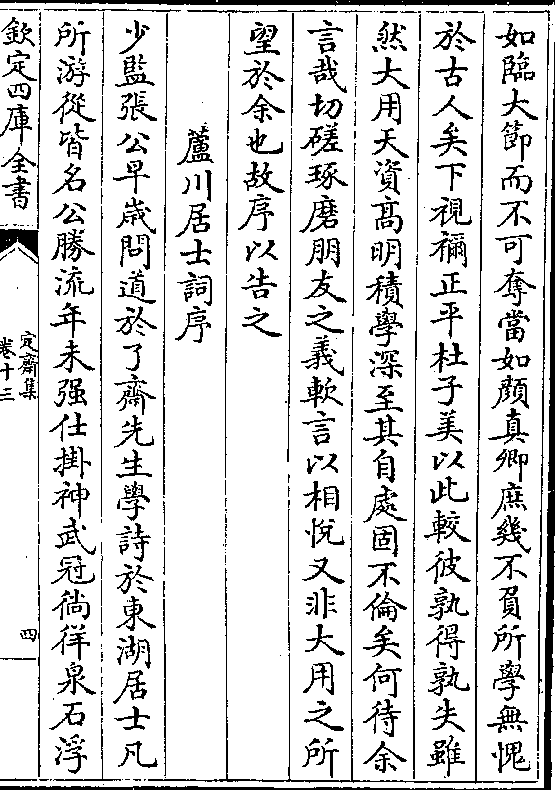 如臨大節而不可奪當如顔真卿庶幾不負所學無愧
於古人矣下視禰正平杜子美以此較彼孰得孰失雖
然大用天資髙明積學深至其自處固不倫矣何待余
言哉切磋琢磨朋友之義軟言以相恱又非大用之所
望於余也故序以告之
蘆川居士詞序
少監張公早歳問道於了齋先生學詩於東湖居士凡
所游從皆名公勝流年未强仕掛神武冠徜徉泉石浮
欽定四庫全書
定齋集
卷十三
四